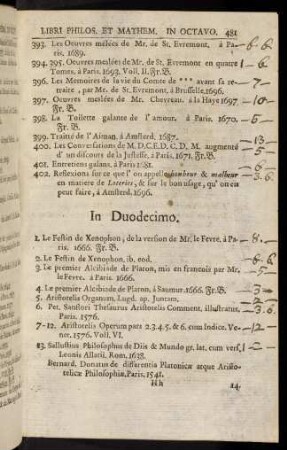 LIBRI PHILOS. ET MATHEM. IN OCTAVO. 481
393. Les Oeuvres meslées de Mr. de St. Evremont, à Pa- - 6 - 6
ris. 1689.
394. 395. Oeuvres meslées de Mr. de St. Evremont en quatre - 6 -
Tomes, à Paris. 1693. Voll. II. Fr. B.
396. Les Memoires de la vie du Comte de *** avant sa re- - 7 -
traite, par Mr. de St. Evremont, à Brusselle, 1696.
397. Oeuvres meslées de Mr. Chevreau. à la Haye 1697. - 10 -
Fr. B.
398. La Toilette galante de l'amour. à Paris. 1670. - 5 -
Fr. B.
399. Traité de l'Aiman, à Amsterd. 1687. - 13 -
400. Les Conversations de M. D. C. E. D. C. D. M. augmenté - 5 -
d'un discours de la Justesse, à Paris. 1671. Fr. B.
401. Entretiens galans, à Paris 1681. - 6 -
402. Reflexions sur ce que l'on appelle bonheur & malheur - 3. 6
en matiere de Loteries, & sur le bon usage, qu'on en
peut faire, à Amsterd. 1696.
In Duodecimo.
1. Le Festin de Xenophon, de la version de Mr. le Fevre. à Pa- - 8. -
ris. 1666. Fr. B.
2. Le Festin de Xenophon. ib. eod. - 6. -
3. Le premier Alcibiade de Platon, mis en francois par Mr. - 5 -
le Fevre. à Paris. 1666.
4. Le premier Alcibiade de Platon, à Saumur. 1666. Fr. B. - 3. -
5. Aristotelis Organum. Lugd. ap. Junctam. - 2 -
6. Pet. Sanflori Thesaurus Aristotelis Comment. illustratus, - 3. 6.
Paris. 1576.
7-12. Aristotelis Operum pars 2.3.4.5. & 6. cum Indice. Ve- - 12 -
net. 1576. Voll. VI.
13. Sallustius Philosophus de Diis & Mundo gr. lat. cum vers. - 2 -
Leonis Allatii, Rom. 1638.
Bernard. Donatus de differentia Platonicæ atque Aristo-
telicæ Philosophiæ, Paris. 1541.
Hh 14.